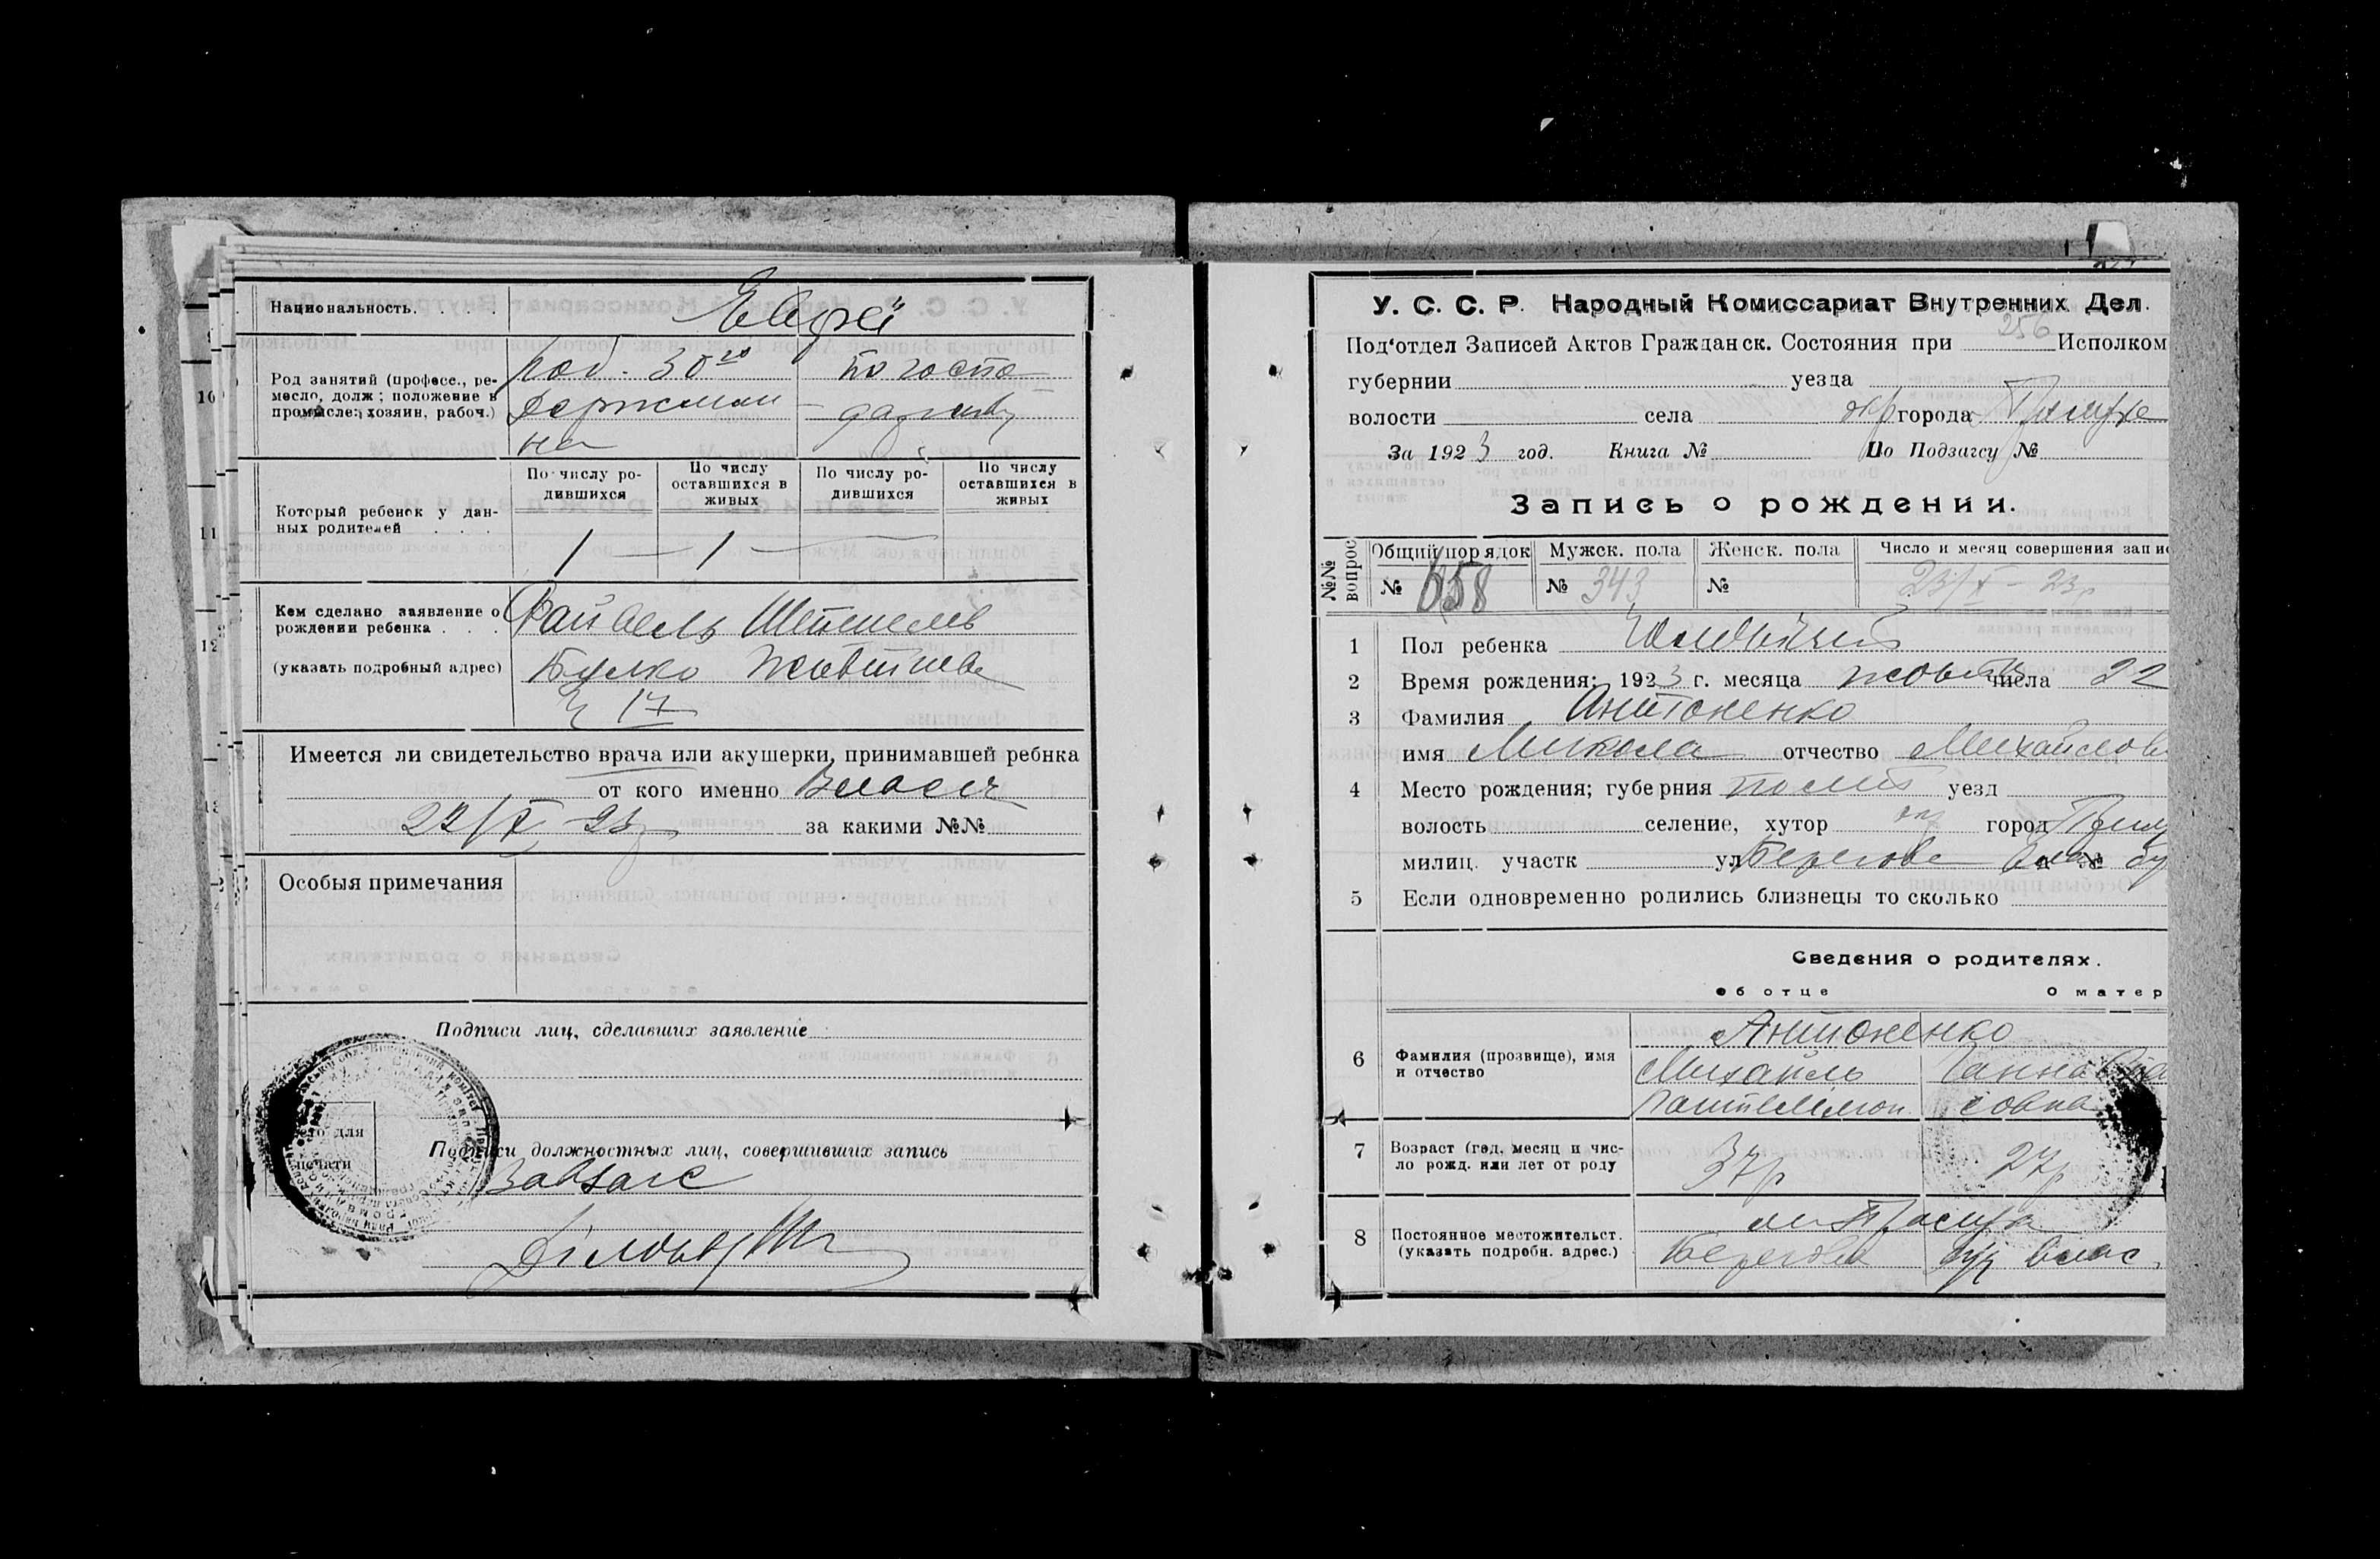 Национальность. . . . .
Евреї
Род занятий (професс., ре-
месло, долж; положение в
промысле: хозяин, рабоч.)
по госпо-
Держмли-
на
Который ребенок у дан-
ных родителей . . . .
По числу ро-
дившихся
По числу
оставшихся в
живых
По числу ро-
дившихся
По число
оставшихся в
живых
1 — 1 —
Кем сделано заявление о
рождении ребенка . . . .
(указать подробный адрес)
Файвель
17
Имеется ли свидетельство врача или акушерки, принимавшей ребнка
от кого именно
22/X – 23р за какими №№
Особыя примечания
Подписи лиц, сделавших заявление
Место для
печати
Подписи должностных лиц, совершивших запись
Завзагс
У. С. С. Р. Народный Комиссариат Внутренних Дел.
256
Под‘отдел Записей Актов Гражданск. Состояния при Исполком
губернии уезда
волости села окр города Прилуке
За 1923 год. Книга № По Подзагсу №
Запись о рождении.
№№ вопрос
Общий порядок
№ 658
Мужск. пола
№ 343
Женск. пола
№
Число и месяц совершения запис
23/X – 23р
1 Пол ребенка Чоловічий
2 Время рождения: 1923 г. месяца жовтн числа 22
3 Фамилия Антоненко
имя Микола отчество Михайлов
4 Место рождения; губерния Полт уезд
волость селение, хутор окр город Прилу
милиц. участк ул Берегова д. №
5 Если одновременно родились близнецы то сколько
Сведения о родителях.
об отце О матер
6 Фамилия (прозвище), имя
и отчество
Антоненко
Михайль Ганна
Пантелемон совна
7 Возраст (год, месяц и чис-
ло рожд. или лет от роду
37р 27р
8 Постоянное местожительст.
(указать подробн. адрес.)
м Прилука
Берегова буд влас.